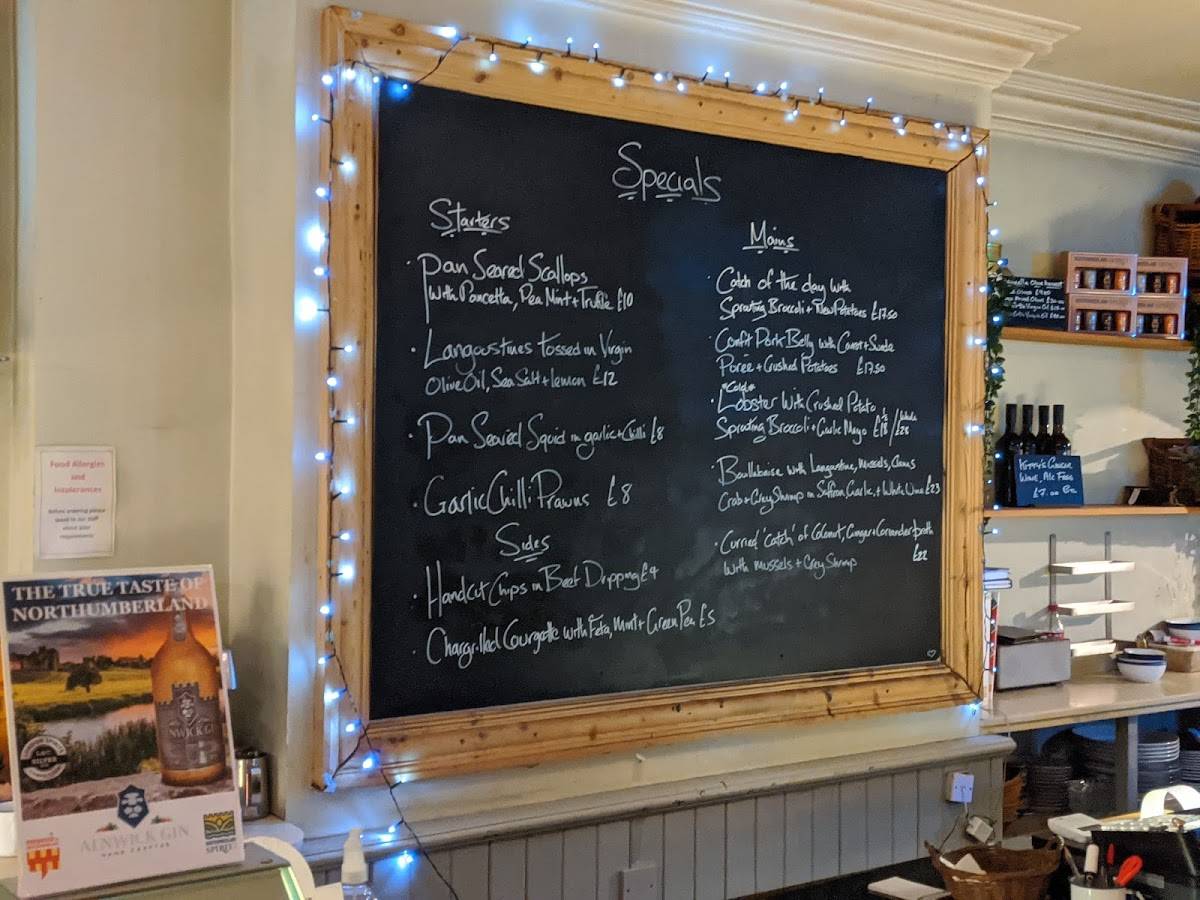 Specials
Starters
· Pan Seared Scallops
with Pancetta, Pea Mint + Truffle £10
· Langoustines tossed in Virgin
Olive Oil, Sea Salt + lemon £12
· Pan Seared Squid in garlic + chilli £8
· Garlic Chilli Prawns £8
Sides
· Handcut Chips in Beef Dripping £4
· Chargrilled Courgette with Feta, Mint + Green Pea £5
Mains
· Catch of the day with
Sprouting Broccoli + New Potatoes £17.50
· Confit Pork Belly with Carrot + Swede
Purée + Crushed Potatoes £17.50
"Cold"
· Lobster with Crushed Potato
Sprouting Broccoli + Garlic Mayo ½ £18 / whole £28
· Bouillabaise with Langoustine, Mussels, Clams
Crab + Grey Shrimp in Saffron, Garlic, + White Wine £23
· Curried 'Catch' of Coconut, Ginger + Coriander broth
with mussels + Grey Shrimp £22
Food Allergies
and
Intolerances
Before ordering please
speak to our staff
about your
requirements
THE TRUE TASTE OF
NORTHUMBERLAND
NWICK GI
SILVER
ALNWICK GIN
SPIRIT
Kitty's Ginger
Wine, Alc Free
£7.00